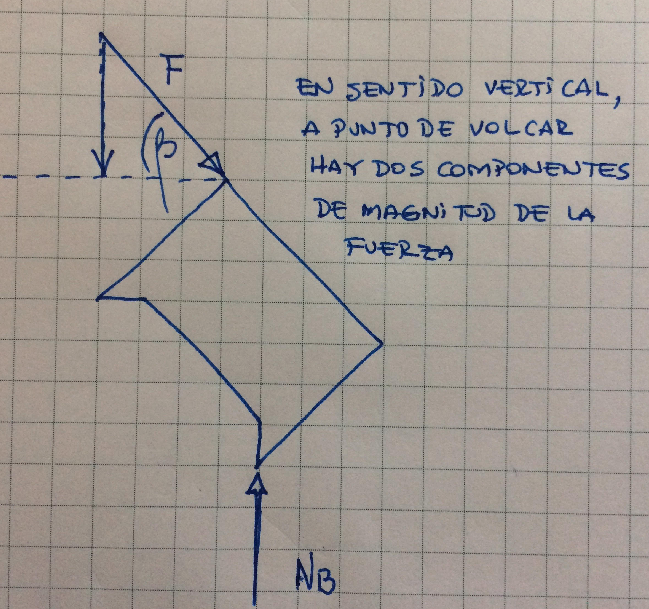 F
EN SENTIDO VERTICAL,
β
A PUNTO DE VOLCAR
HAY DOS COMPONENTES
DE MAGNITUD DE LA
FUERZA
NB